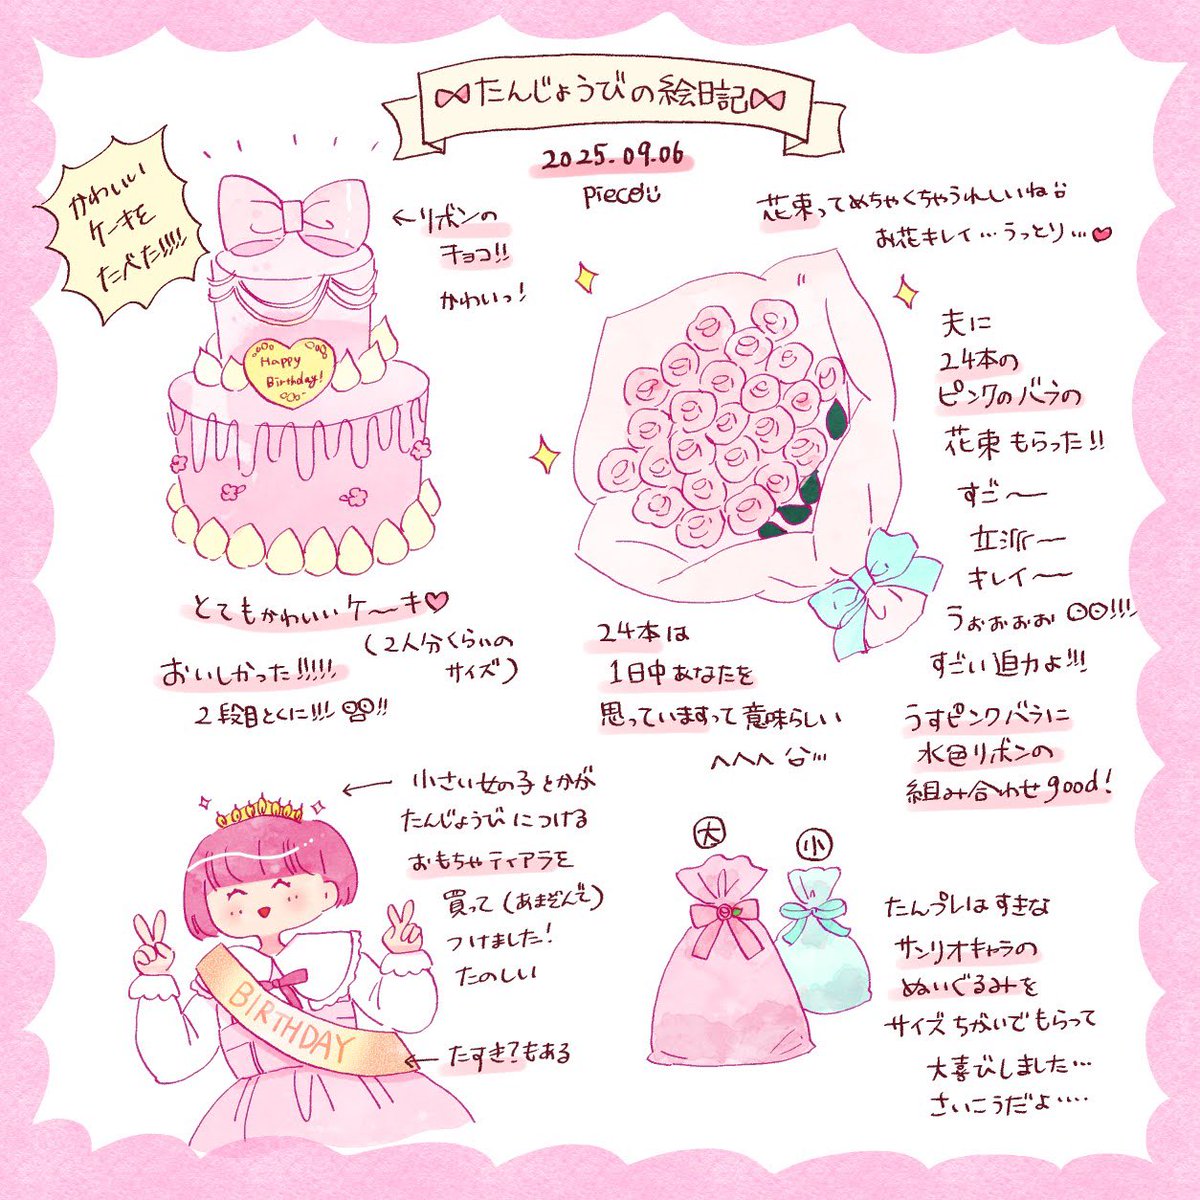 たんじょうびの絵日記
2025.09.06
piece
かわいい
ケーキを
たべた!!!!
←リボンの
チョコ!!
かわいっ!
Happy
Birthday!
とてもかわいいケーキ♡
(2人分くらいの
サイズ)
おいしかった!!!!!
2段目とくに!!! !!
花束ってめちゃくちゃうれしいね
お花キレイ…うっとり…♥
夫に
24本の
ピンクのバラの
花束もらった!!
すご〜
立派〜
キレイ〜
うぉぉぉぉ !!!
すごい迫力よ!!!
24本は
1日中あなたを
思っていますって意味らしい
へへへ
うすピンクバラに
水色リボンの
組み合わせgood!
← 小さい女の子とかが
たんじょうびにつける
おもちゃティアラを
買って(あまぞんで)
つけました!
たのしい
BIRTHDAY
←たすき?もある
大
小
たんプレはすきな
サンリオキャラの
ぬいぐるみを
サイズちがいでもらって
大喜びしました…
さいこうだよ….